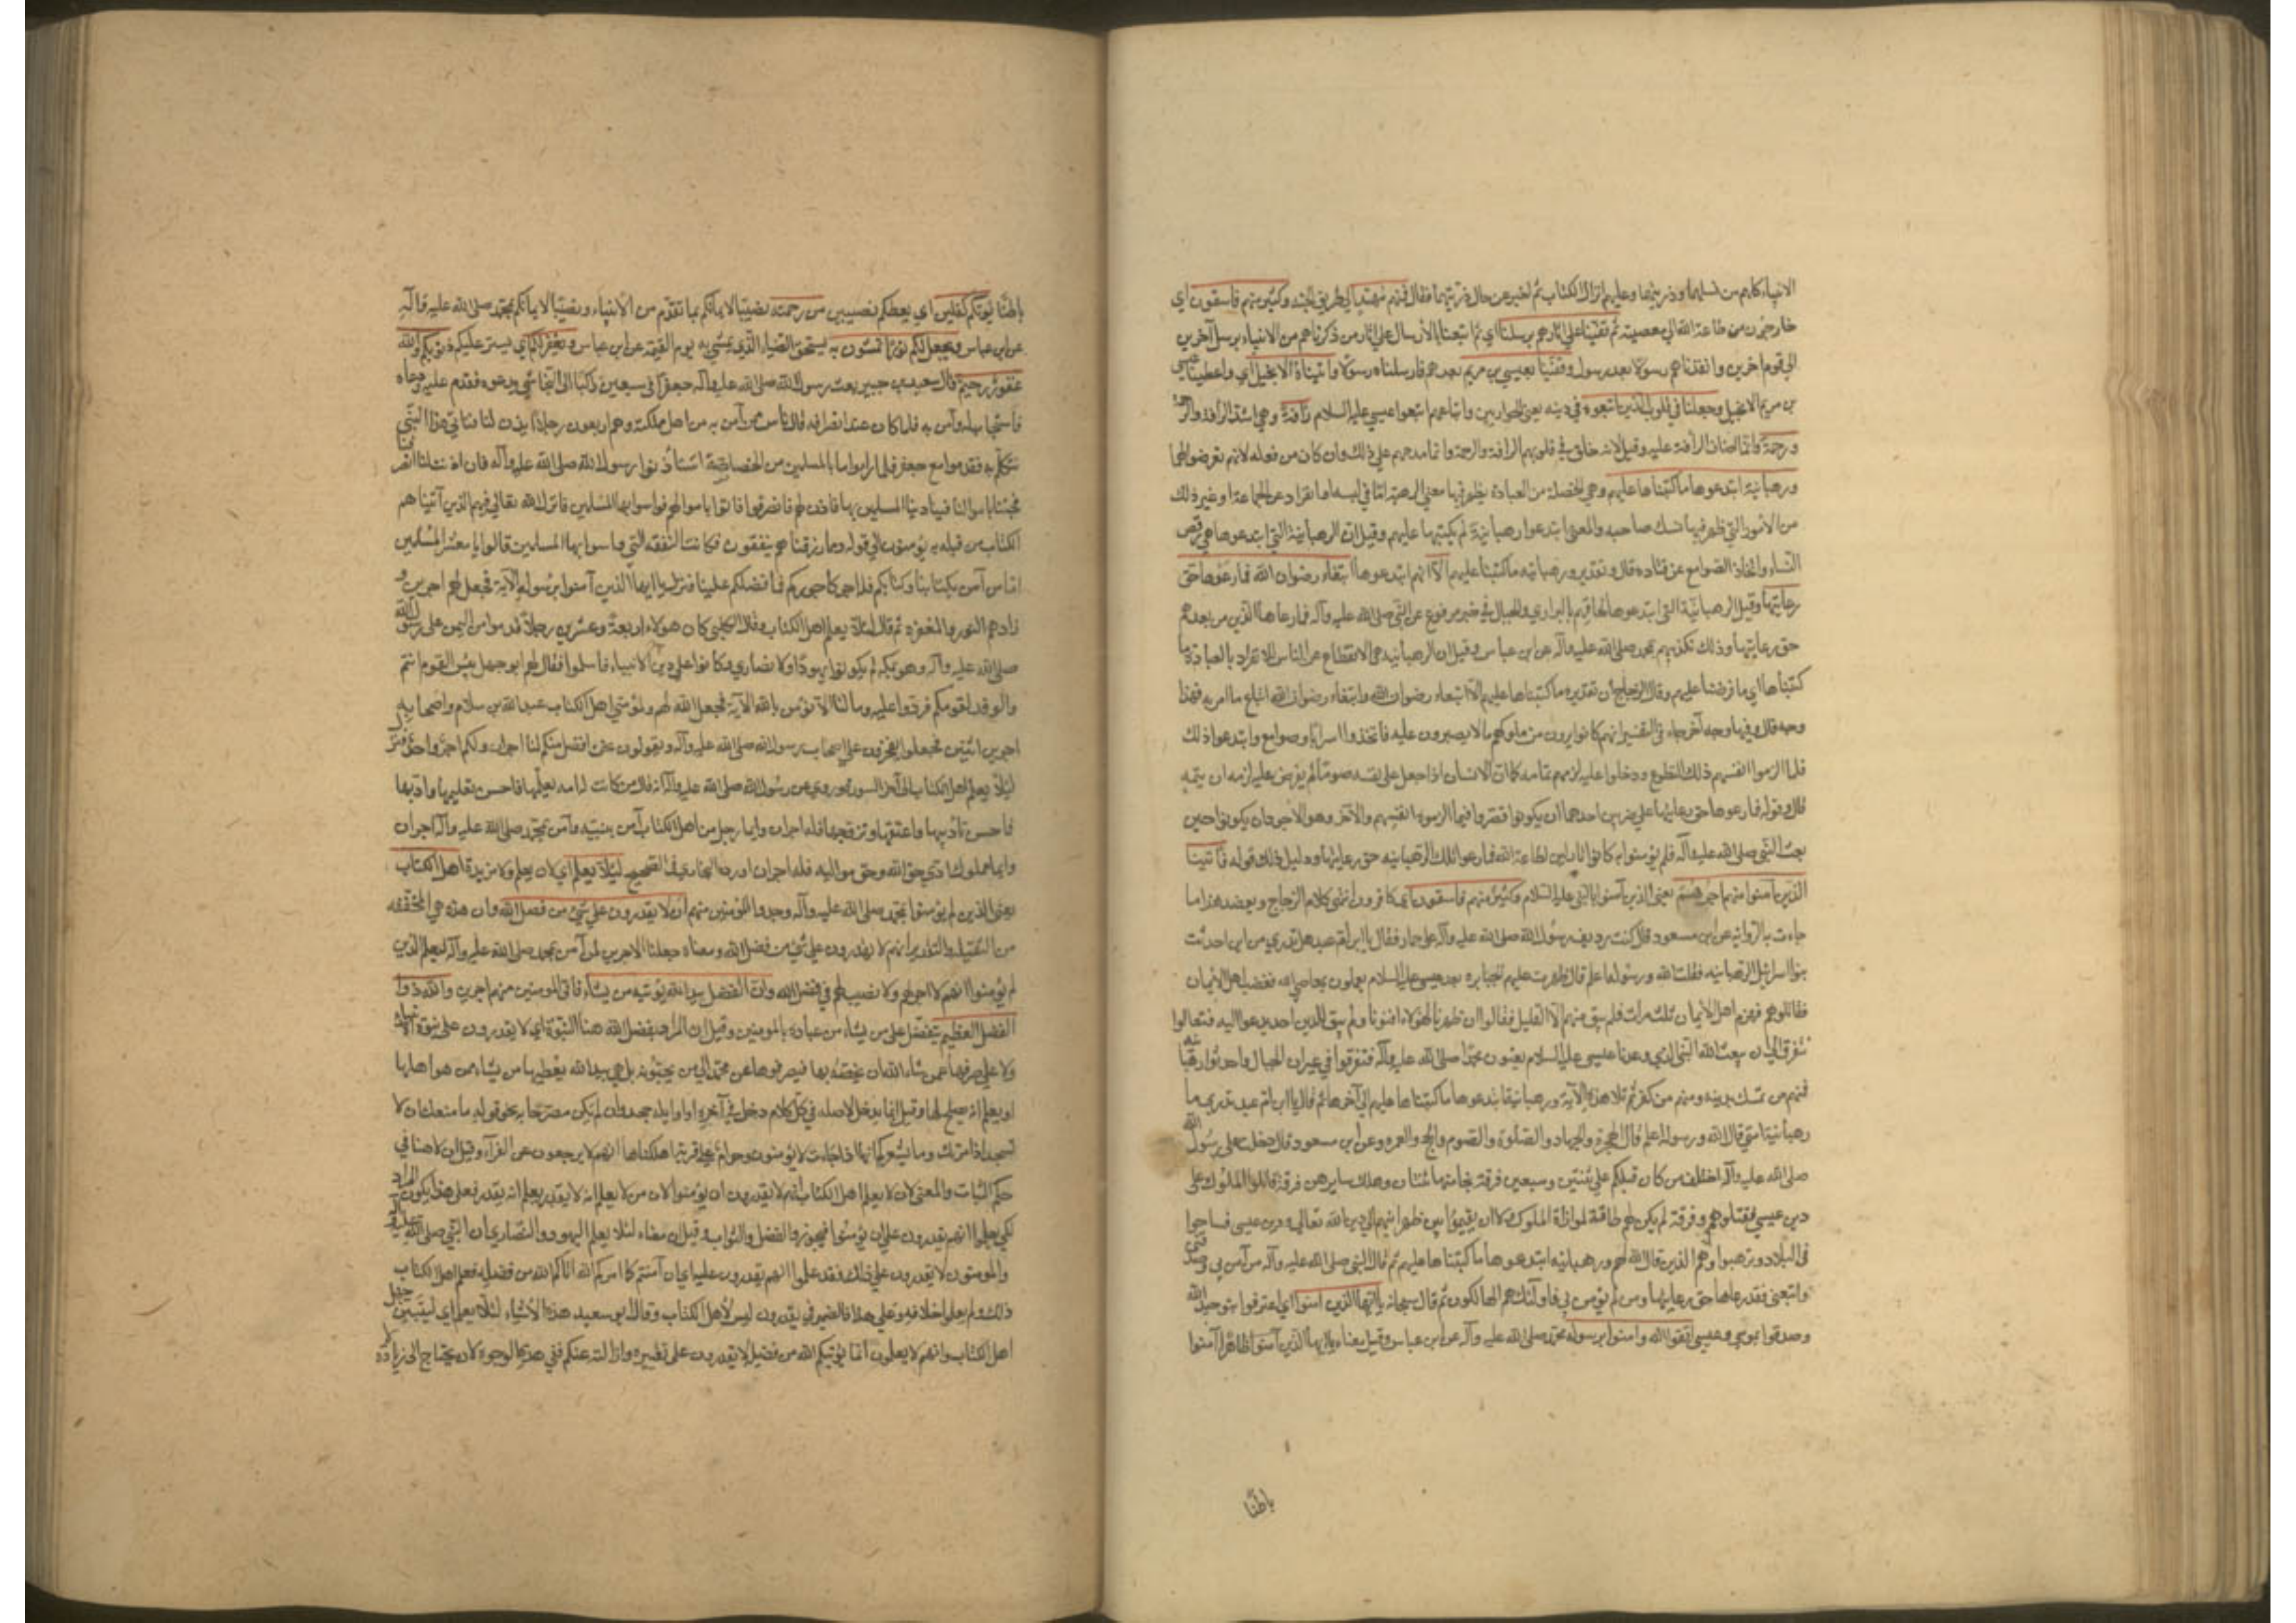 الانبياء كلهم من نسلهما وذريتهما وعليهم انزال الكتاب ثم اخبر عن حال ذريتهما فقال فمنهم مهتد الى طريق الجنة وكثير منهم فاسقون اي
خارجون من طاعة الله الى معصيته ثم قفينا على آثارهم برسلنا اي ثم اتبعنا بالارسال على آثار من ذكرناهم من الانبياء برسل آخرين
الى قوم اخرين وانفذناهم رسولا بعد رسول وقفينا بعيسى بن مريم بعدهم فارسلناه رسولا واتيناه الانجيل اي واعطينا عيسى
بن مريم الانجيل وجعلنا في قلوب الذين اتبعوه في دينه يعني الحواريين واتباعهم اتبعوا عيسى عليه السلام رافة وهي اشد الرافة والرحمة
ورحمة وانما اضاف الرأفة عليه وقيل لانه خلق في قلوبهم الرافة والرحمة وانما مدحهم على ذلك وان كان من فعله لانهم تعرضوا لها
ورهبانية ابتدعوها ما كتبناها عليهم وهي الخصلة من العبادة يظهر فيها معنى الرهبة اما في لبسه او انفراد عن الجماعة او غير ذلك
من الأمور التي يظهر فيها نسك صاحبه والمعنى ابتدعوا رهبانية لم يكتبها عليهم وقيل ان الرهبانية التي ابتدعوها هي رفض
النساء واتخاذ الصوامع عن قتادة قال وتقديره ورهبانية ما كتبنا عليهم الا انهم ابتدعوها ابتغاء رضوان الله فما رعوها حق
رعايتها وقيل الرهبانية التي ابتدعوها لحاقهم بالبراري والجبال في خبر مرفوع عن النبي صلى الله عليه وآله فما رعاها الذين من بعدهم
حق رعايتها وذلك تكذيبهم بمحمد صلى الله عليه وآله عن ابن عباس وقيل ان الرهبانية هي الانقطاع عن الناس للانفراد بالعبادة ما
كتبناها اي ما فرضنا عليهم وقال الزجاج ان تقديره ما كتبناها عليهم الا ابتغاء رضوان الله وابتغاء رضوان الله اتباع ما امر به فهذا
وجه قال وفيها وجه آخر جاء في التفسير انهم كانوا يرون من ملوكهم ما لا يصبرون عليه فاتخذوا اسرابا وصوامع وابتدعوا ذلك
فلما الزموا انفسهم ذلك التطوع ودخلوا عليه لزمهم تمامه كما ان الانسان اذا جعل على نفسه صوما لم يفرض عليه لزمه ان يتمه
قال وقوله فما رعوها حق رعايتها على ضربين احدهما ان يكونوا قصروا فيما الزموه انفسهم والاخر وهو الاجود ان يكونوا حين
بعث النبي صلى الله عليه وآله فلم يؤمنوا به كانوا تاركين لطاعة الله فما رعوا تلك الرهبانية حق رعايتها ودليل ذلك قوله فآتينا
الذين آمنوا منهم اجرهم يعني الذين آمنوا بالنبي عليه السلام وكثير منهم فاسقون اي كافرون انتهى كلام الزجاج ويعضد هذا ما
جاءت به الرواية عن ابن مسعود قال كنت رديف رسول الله صلى الله عليه وآله على حمار فقال يا ابن ام عبد هل تدري من اين احدثت
بنو اسرائيل الرهبانية فقلت الله ورسوله اعلم قال ظهرت عليهم الجبابرة بعد عيسى عليه السلام يعملون بمعاصي الله فغضب اهل الايمان
فقاتلوهم فهزم اهل الايمان ثلث مرات فلم يبق منهم الا القليل فقالوا ان ظهرنا لهؤلاء افنونا ولم يبق للدين احد يدعو اليه فتعالوا
نتفرق الى ان يبعث الله النبي الذي وعدنا عيسى عليه السلام يعنون محمدا صلى الله عليه وآله فتفرقوا في غيران الجبال واحدثوا رهبانية
فمنهم من تمسك بدينه ومنهم من كفر ثم تلا هذه الآية ورهبانية ابتدعوها ما كتبناها عليهم الى آخرها ثم قال يا ابن ام عبد تدري ما
رهبانية امتي قال الله ورسوله اعلم قال الهجرة والجهاد والصلوة والصوم والحج والعمرة وعن ابن مسعود قال دخلت على رسول الله
صلى الله عليه وآله اختلف من كان قبلكم على ثنتين وسبعين فرقة نجا منها ثنتان وهلك سايرهن فرقة قاتلوا الملوك على
دين عيسى فقتلوهم وفرقة لم يكن لهم طاقة لموازاة الملوك ولا ان يقيموا بين ظهرانيهم الى دين الله تعالى ودين عيسى فساحوا
في البلاد وترهبوا وهم الذين قال الله لهم ورهبانية ابتدعوها ما كتبناها عليهم ثم قال النبي صلى الله عليه وآله من آمن بي وصدقني
واتبعني فقد رعاها حق رعايتها ومن لم يؤمن بي فاولئك هم الهالكون ثم قال سبحانه يا ايها الذين امنوا اي اعترفوا بتوحيد الله
وصدقوا بموسى وعيسى اتقوا الله وامنوا برسوله محمد صلى الله عليه وآله عن ابن عباس وقيل معناه يا ايها الذين آمنوا ظاهرا آمنوا
باطنا
باطنا يؤتكم كفلين اي يعطكم نصيبين من رحمته نصيبا لايمانكم بما تقدم من الأنبياء ونصيبا لايمانكم بمحمد صلى الله عليه وآله
عن ابن عباس ويجعل لكم نورا تمشون به يستحق الضياء الذي يمشي به يوم القيمة عن ابن عباس ويغفر لكم اي يستر عليكم ذنوبكم والله
غفور رحيم قال سعيد بن جبير بعث رسول الله صلى الله عليه وآله جعفرا في سبعين راكبا الى النجاشي يدعوه فقدم عليه ودعاه
فاستجاب له وآمن به فلما كان عند انصرافه قال ناس ممن آمن به من اهل مملكته وهم اربعون رجلا ايذن لنا فناتي هذا النبي
فنسلم به فقدموا مع جعفر فلما راوا ما بالمسلمين من الخصاصة استأذنوا رسول الله صلى الله عليه وآله فان اذنت لنا انصرفنا
فجئنا باموالنا فواسينا المسلمين بها فاذن لهم فانصرفوا فاتوا باموالهم فواسوا بها المسلمين فانزل الله تعالى فيهم الذين آتيناهم
الكتاب من قبله هم به يؤمنون الى قوله ومما رزقناهم ينفقون فكانت النفقة التي واسوا بها المسلمين قالوا يا معشر المسلمين
اما من آمن بكتابنا وكتابكم فله اجر كاجوركم فما فضلكم علينا فنزل يا ايها الذين آمنوا برسوله الآية فجعل لهم اجرين و
زادهم النور والمغفرة ثم قال لئلا يعلم اهل الكتاب وقال الكلبي كان هؤلاء اربعة وعشرين رجلا قدموا من اليمن على رسول الله
صلى الله عليه وآله وهو بمكة لم يكونوا يهودا ولا نصارى وكانوا على دين الانبياء فاسلموا فقال لهم ابو جهل بئس القوم انتم
والوفد لقومكم فردوا عليه وما لنا لا نؤمن بالله الآية فجعل الله لهم ولمؤمني اهل الكتاب عبد الله بن سلام واصحابه
اجرين اثنين فجعلوا يفخرون على اصحاب رسول الله صلى الله عليه وآله ويقولون نحن افضل منكم لنا اجران ولكم اجر واحد فنزل
لئلا يعلم اهل الكتاب الى آخر السورة وروي عن رسول الله صلى الله عليه وآله انه قال من كانت له امة يعلمها فاحسن تعليمها وادبها
فاحسن تأديبها واعتقها وتزوجها فله اجران وايما رجل من اهل الكتاب آمن بنبيه وآمن بمحمد صلى الله عليه وآله اجران
وايما مملوك ادى حق الله وحق مواليه فله اجران اورده البخاري في الصحيح لئلا يعلم اي لان يعلم ولا مزيدة اهل الكتاب
يعني الذين لم يؤمنوا بمحمد صلى الله عليه وآله وحسدوا المؤمنين منهم ان لا يقدرون على شئ من فضل الله وان هذه هي المخففة
من الثقيلة والتقدير انهم لا يقدرون على شئ من فضل الله ومعناه جعلنا الاجرين لمن آمن بمحمد صلى الله عليه وآله ليعلم الذين
لم يؤمنوا انهم لا اجر لهم ولا نصيب لهم في فضل الله وان الفضل بيد الله يؤتيه من يشاء فآتى المؤمنين منهم اجرين والله ذو
الفضل العظيم يتفضل على من يشاء من عباده المؤمنين وقيل ان المراد بفضل الله هنا النبوة اي لا يقدرون على نبوة الانبياء
ولا على صرفها عمن شاء الله ان يخصه بها فيصرفوها عن محمد الى من يحبونه بل هي بيد الله يعطيها من يشاء ممن هو اهلها
او يعلم انه يصلح لها وقيل انما يدخل لا صلة في كل كلام دخل في آخره او اوايله جحد وان لم يكن مصرحا به نحو قوله ما منعك ان لا
تسجد اذ امرتك وما يشعركم انها اذا جاءت لا يؤمنون وحرام على قرية اهلكناها انهم لا يرجعون عن الفراء وقيل ان لا هنا في
حكم الثبات والمعنى لان لا يعلم اهل الكتاب انهم لا يقدرون ان يؤمنوا لان من لا يعلم انه لا يقدر يعلم انه يقدر فعلى هذا يكون المراد
لكي يعلموا انهم يقدرون على ان يؤمنوا فيحوزوا الفضل والثواب وقيل ان معناه لئلا يعلم اليهود والنصارى ان النبي صلى الله عليه وآله
والمؤمنون لا يقدرون على ذلك فقد علموا انهم يقدرون عليه اي ان آمنتم كما امركم الله آتاكم الله من فضله فعلم اهل الكتاب
ذلك ولم يعلموا خلافه وعلى هذا فالضمير في يقدرون ليس لأهل الكتاب وقال ابو سعيد هذه الأشياء لئلا يعلم اي ليتبين جهل
اهل الكتاب وانهم لا يعلمون انما يؤتيكم الله من فضله لا يقدرون على تغييره وازالته عنكم ففي هذه الوجوه لا يحتاج الى زيادة لا